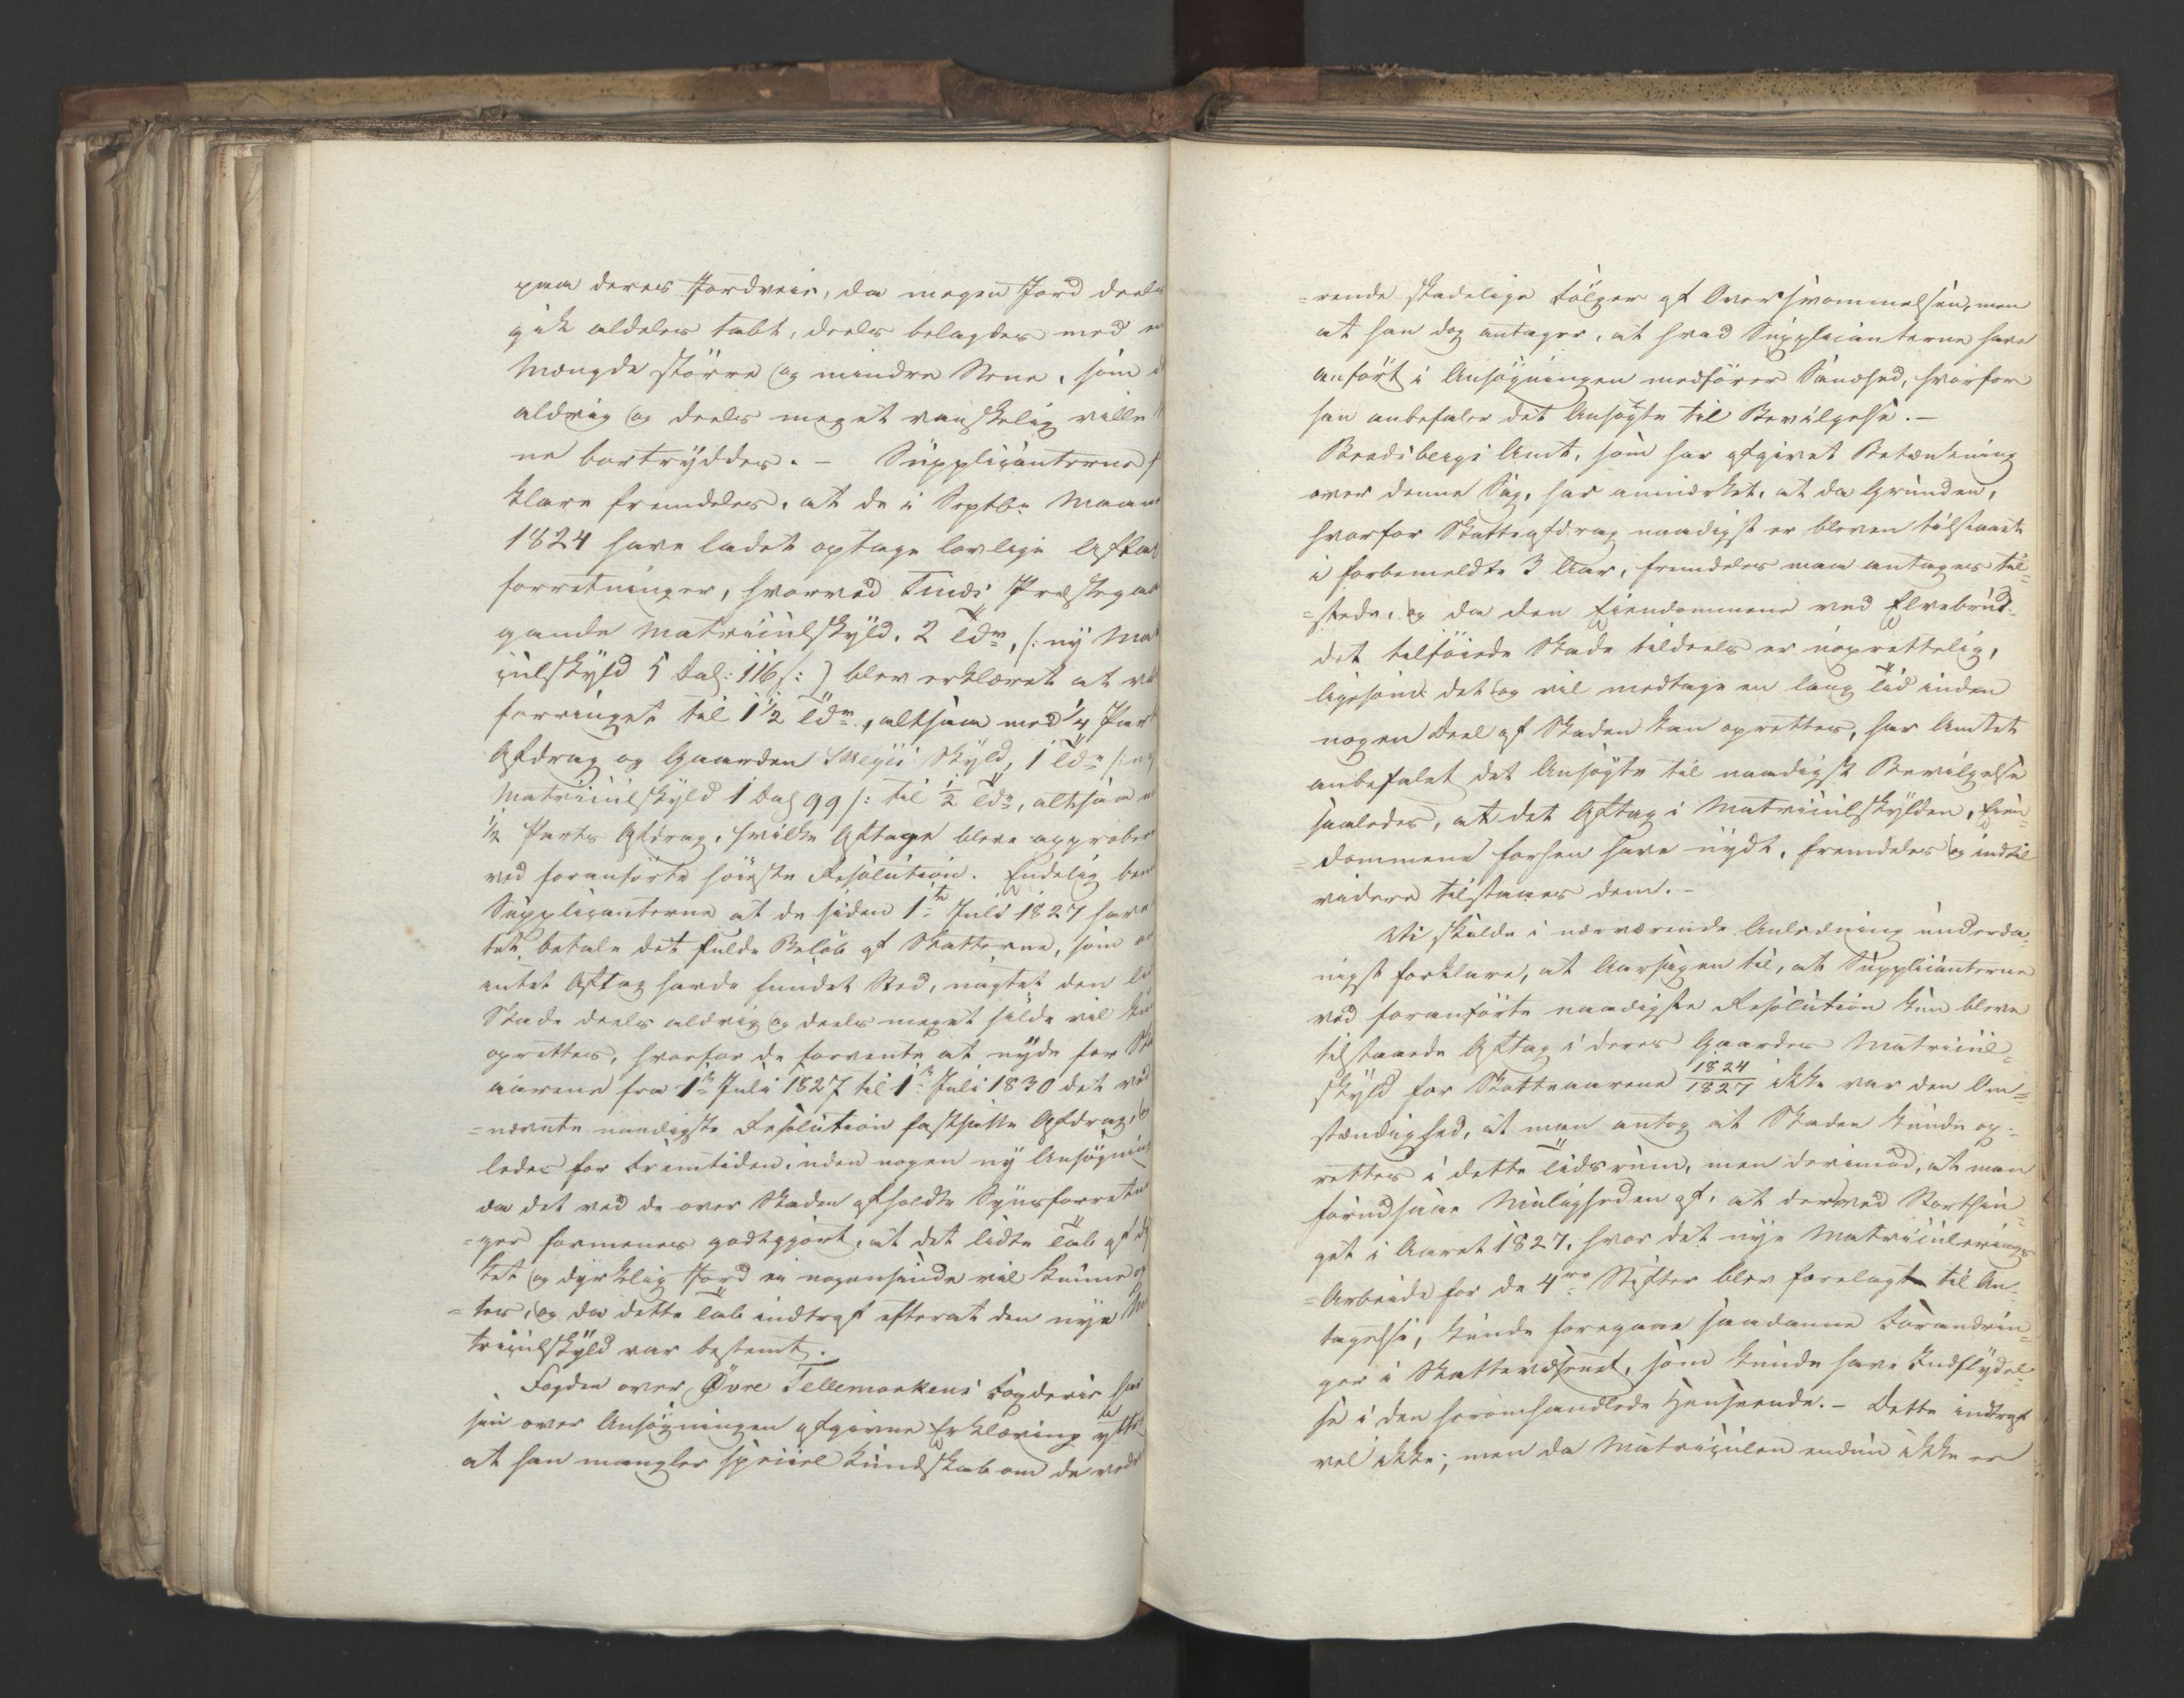 paa deres Jordveie, da megen Jord deels
gik aldeles tabt, deels belagdes med en
Mængde större og mindre Stene, som d
aldrig og deels meget vanskelig ville k
ne bortryddes. – Suppliqanterne f
klare fremdeles, at de i Septbr Maane
1824 have ladet optage lovlige Aftax
forretninger, hvorved Tinds Præstegaar
gamle Matriculskyld, 2 Tdr, /: ny Mat
culskyld 5 Dal: 116 s: / blev erklæret at væ
forringet til 1 1/2 Tdr, altsaa med 1/4 Part
Afdrag og Gaarden Skeyes Skyld, 1 Tdr /: ny
Matriculskyld 1 Dal 99 s: til 1/2 Tdr, altsaa m
1/2 Parts Afdrag, hvilke Aftage bleve approber
ved foranförte höieste Resolution. Endelig bem
Suppliqanterne at de siden 1te Juli 1827 have
tet betale det fulde Belöb af Skatterne, som om
intet Aftag havde fundet Sted, uagtet den li
Skade deels aldrig og deels meget silde vil kun
oprettes, hvorfor de forvente at nyde for Ska
aarene fra 1te Juli 1827 til 1te Juli 1830 det ved
=nævnte naadigste Resolution fastsatte Afdrag,
ledes for Fremtiden, uden nogen ny Ansögning
da det ved de over Skaden afholdte Synsforretn
=ger formenes godtgjort, at det lidte Tab af dy
ket og dyrklig Jord ei nogensinde vil kunne o
=tes, og da dette Tab indtraf efterat den nye M
triculskyld var bestemt.
Fogden over Övre Tellemarkens Fogderie har
sin over Ansögningen afgivne Erklæring yttr
at han mangler speciel Kundskab om de vedva
=rende skadelige Fölger af Oversvömmelsen, men
at han dog antager, at hvad Supplicanterne have
anfört i Ansögningen medförer Sandhed, hvorfor
han anbefaler det Ansögte til Bevilgelse. –
Bradsbergs Amt, som har afgivet Betænkning
over denne Sag, har anmærket, at da Grunden,
hvorfor Skatteafdrag naadigst er bleven tilstaaet
i forbemeldte 3 Aar, fremdeles maa antages til=
=stede, og da den Eiendommene ved Elvebrud=
det tilföiede Skade tildeels er uoprettelig,
ligesom det og vil medtage en lang Tid inden
nogen Deel af Skaden kan oprettes, har Amtet
anbefalet det Ansögte til naadigst Bevilgelse
saaledes, at det Aftag i Matriculskylden, Eien=
=dommene forhen have nydt, fremdeles og indtil
videre tilstaaes dem. –
Vi skulde i nærværende Anledning underda=
nigst forklare, at Aarsagen til, at Supplicanterne
ved foranförte naadigste Resolution kun bleve
tilstaaede Aftag i deres Gaardes Matricul=
skyld for Skatteaarene 1824/1827 ikke var den Om=
stændighed, at man antog at Skaden kunde op=
rettes i dette Tidsrum, men derimod, at man
forudsaae Muligheden af, at der ved Storthin=
get i Aaret 1827, hvor det nye Matriculerings
=Arbeide for de 4re Stifter blev forelagt til An=
tagelse, kunde foregaae saadanne Forandrin=
ger i Skattevæsenet, som kunde have Indflydel=
se i den heromhandlede Henseende. – Dette indtraf
vel ikke; men da Matriculen endnu ikke er